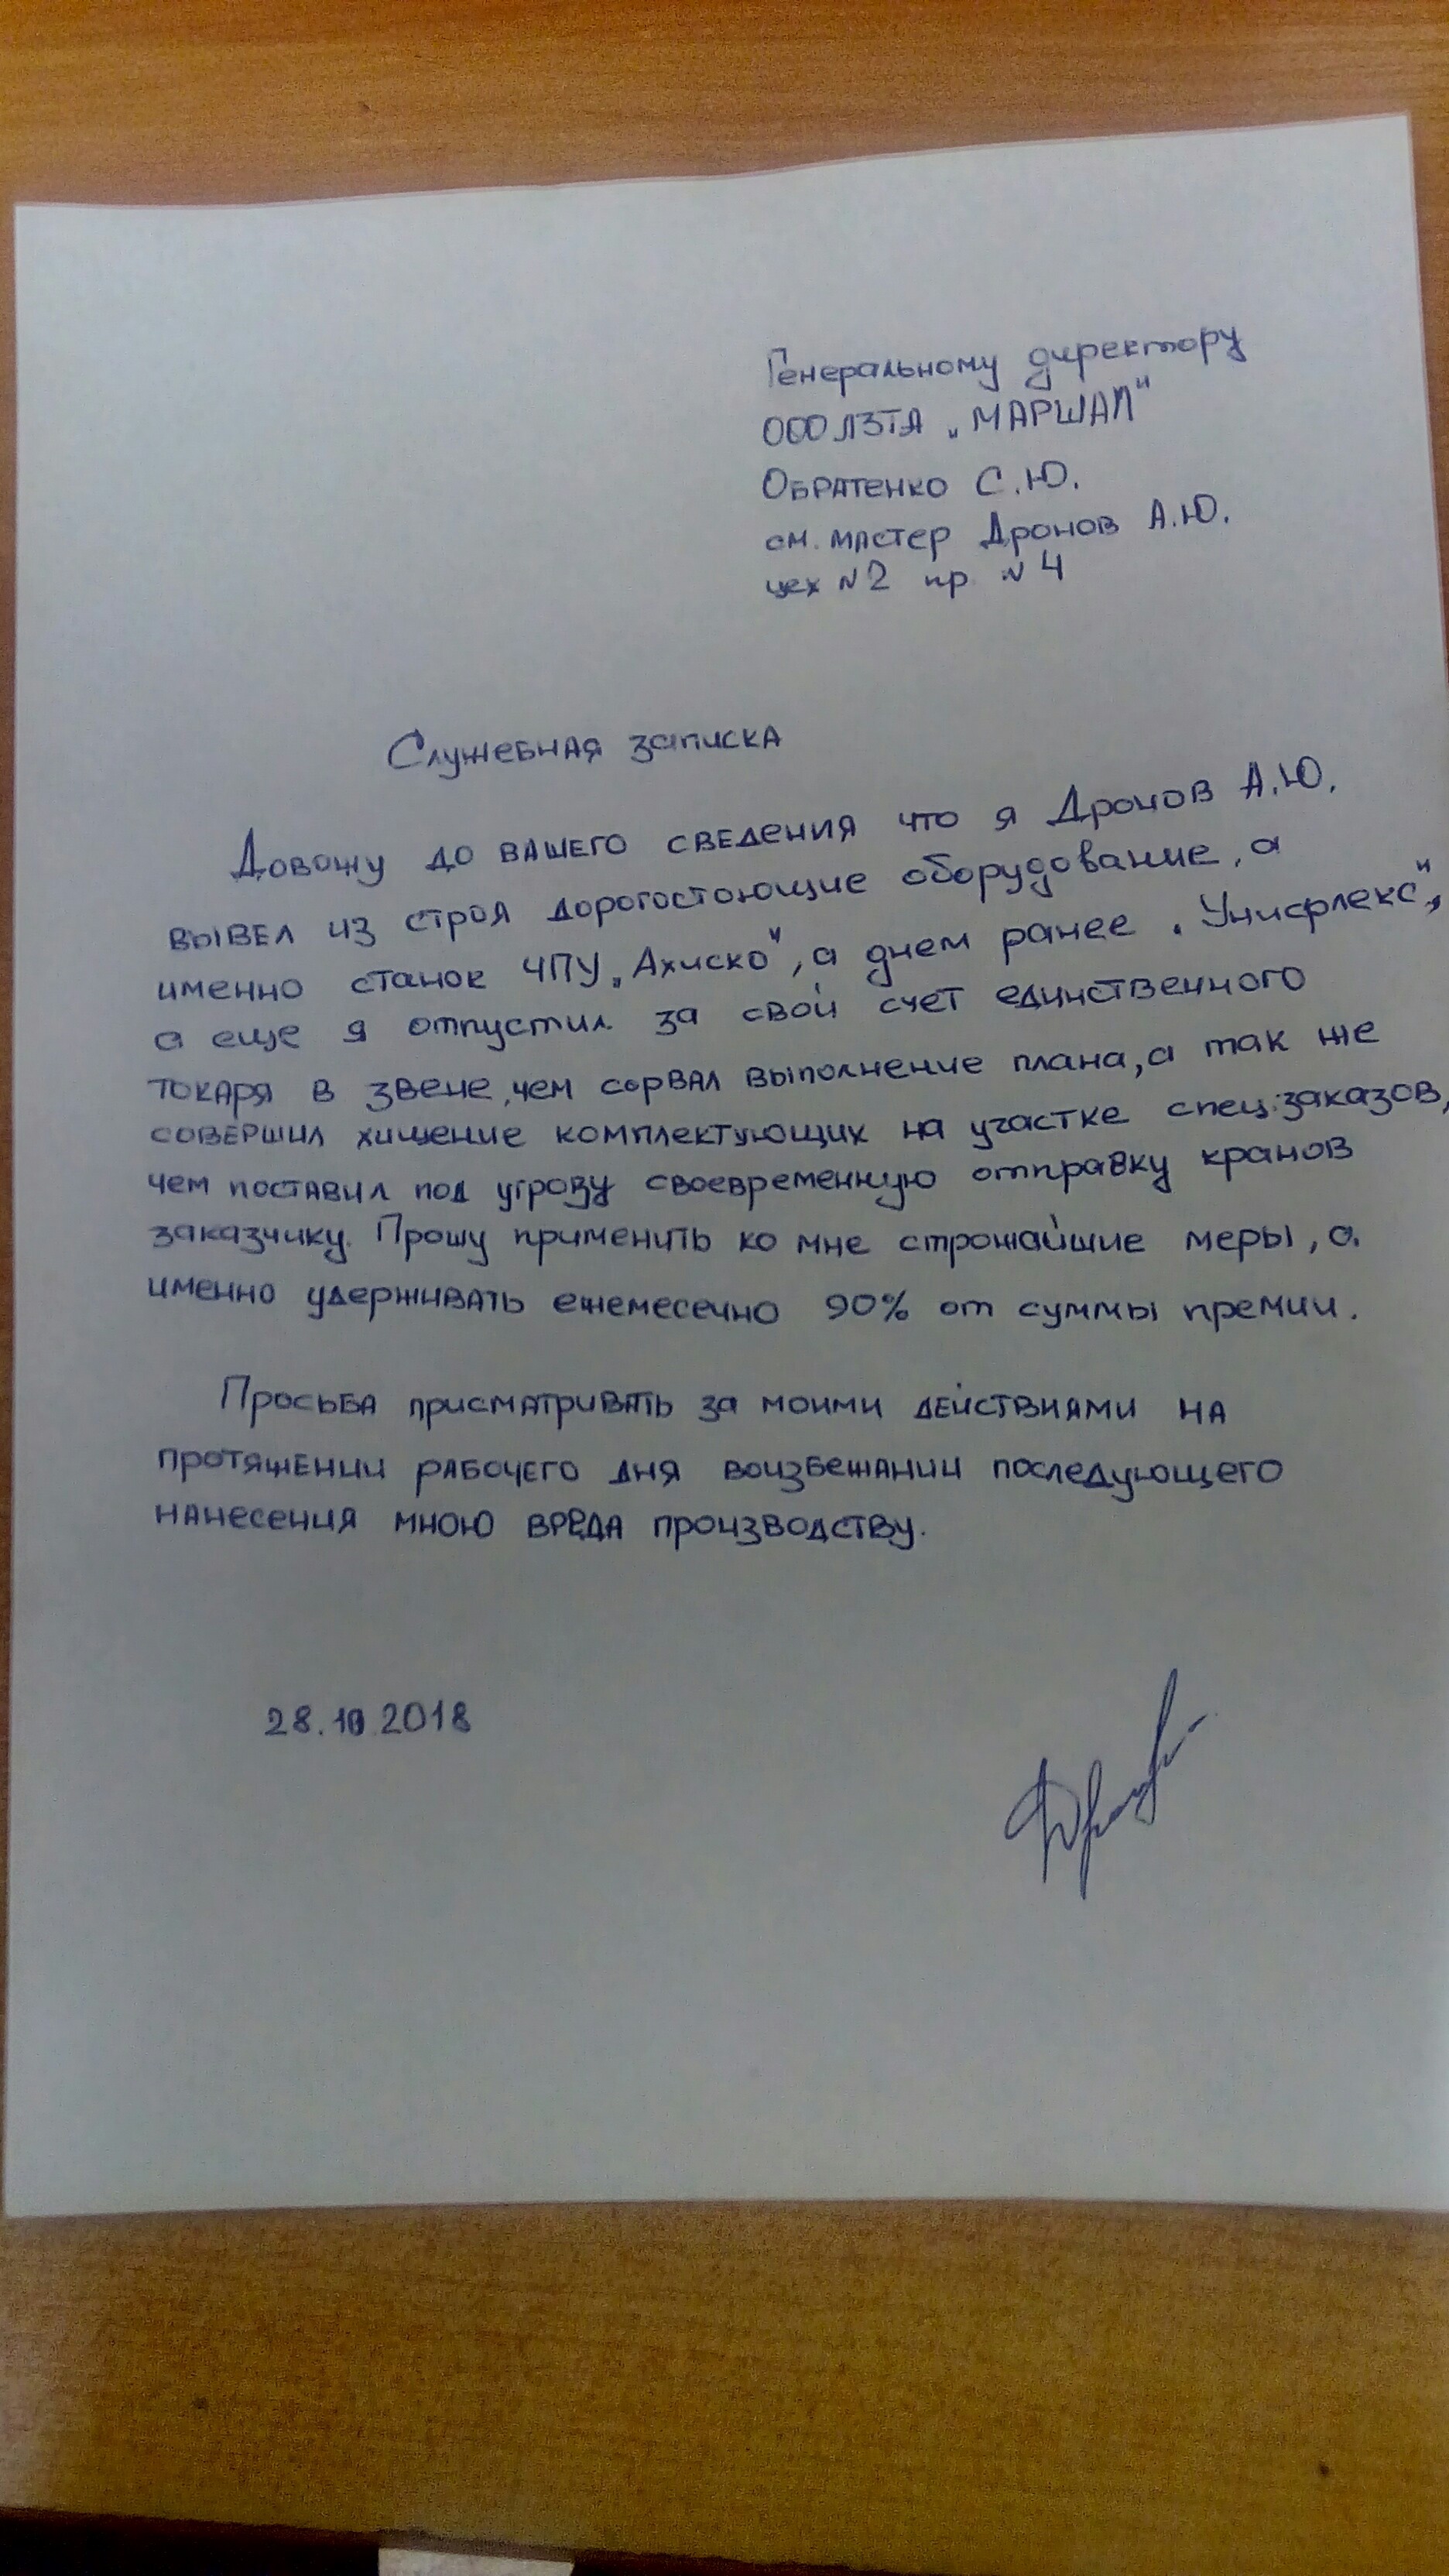 Генеральному директору
ООО ЛЗТА „МАРШАЛ"
Обратенко С.Ю.
см. мастер Дронов А.Ю.
цех N2 пр N4
Служебная записка
Довожу до вашего сведения что я Дронов А.Ю.
вывел из строя дорогостоющие оборудование, а
именно станок ЧПУ „Ахиско", а днем ранее „Унифлекс",
а еще я отпустил за свой счет единственного
токаря в звене, чем сорвал выполнение плана, а так же
совершил хищение комплектующих на участке спец.заказов,
чем поставил под угрозу своевременную отправку кранов
заказчику. Прошу применить ко мне строжайшие меры, а
именно удерживать ежемесечно 90% от суммы премии.
Просьба присматривать за моими действиями на
протяжении рабочего дня воизбежании последующего
нанесения мною вреда производству.
28.10.2018